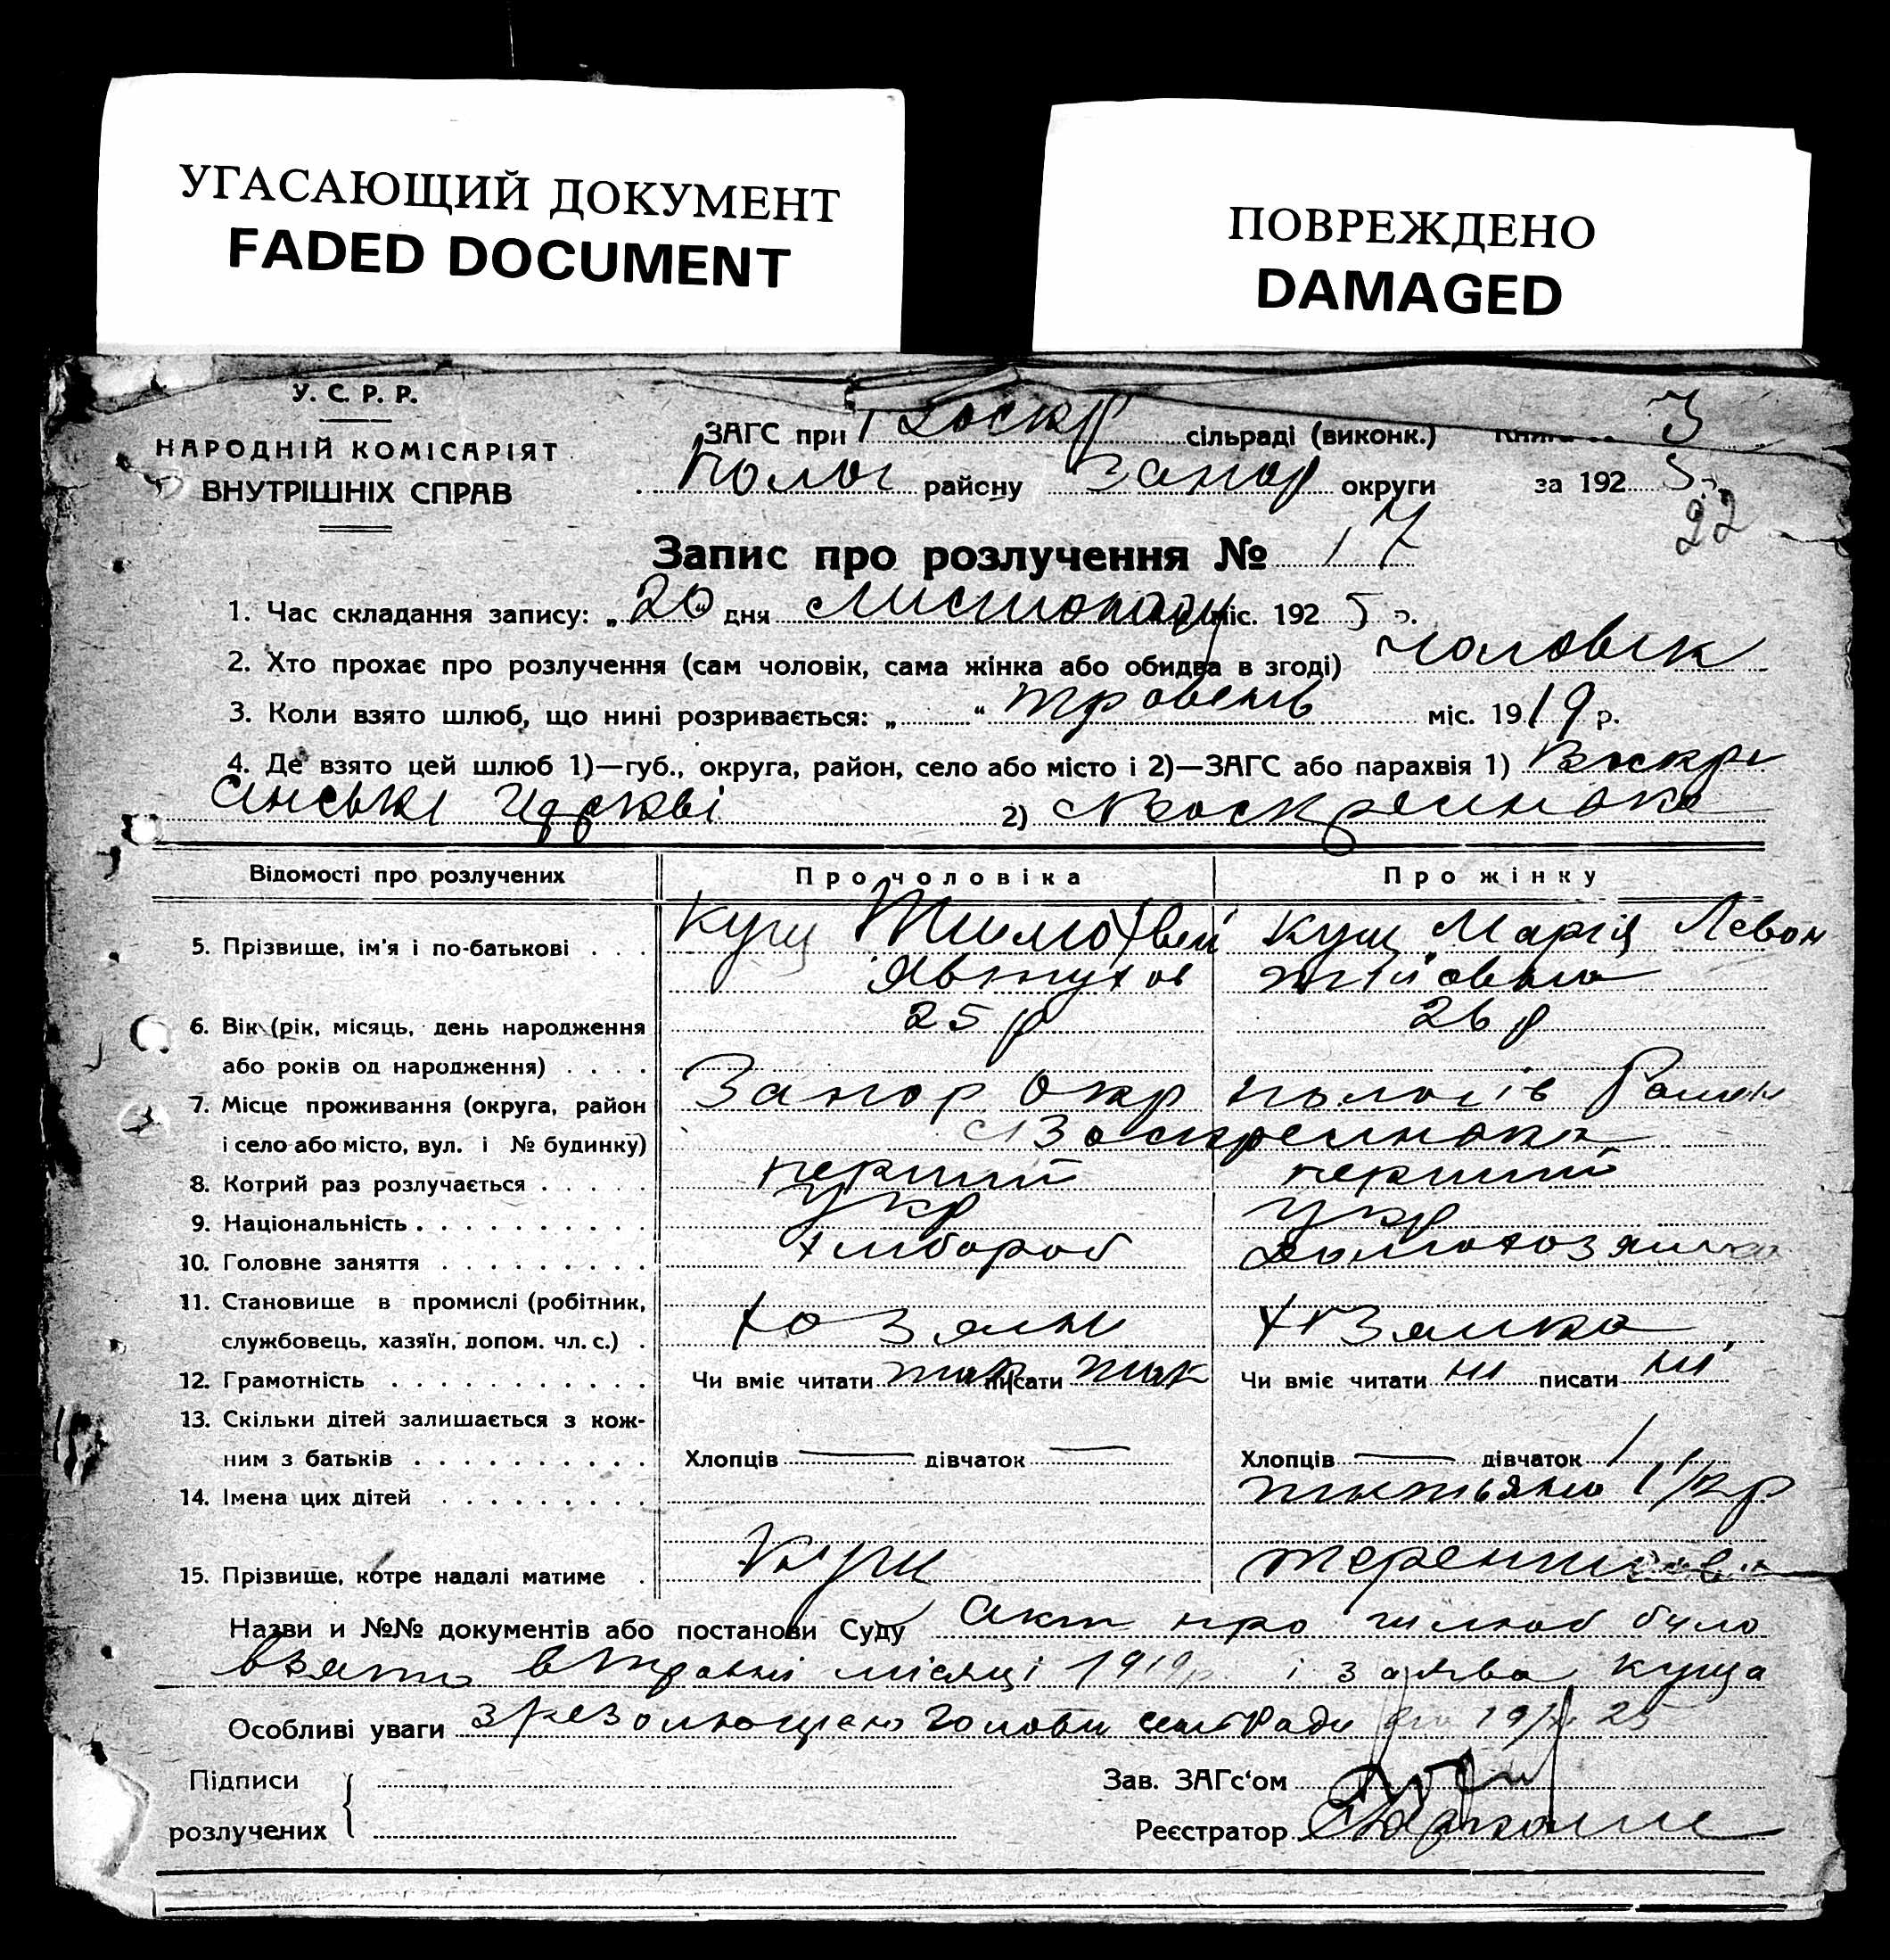 УГАСАЮЩИЙ ДОКУМЕНТ
FADED DOCUMENT
ПОВРЕЖДЕНО
DAMAGED
У. С. Р. Р.
НАРОДНІЙ КОМІСАРІЯТ
ВНУТРІШНІХ СПРАВ
ЗАГС при Воскр сільраді (виконк.) 3
Полог району Запор округи за 1925
22
Запис про розлучення № 17
1. Час складання запису: „20“ дня листопаду міс. 1925 р.
2. Хто прохає про розлучення (сам чоловік, сама жінка або обидва в згоді) чоловік
3. Коли взято шлюб, що нині розривається: „ “ травень міс. 1919 р.
4. Де взято цей шлюб 1)—губ., округа, район, село або місто і 2)—ЗАГС або парахвія 1) Воскре
сінські церкві 2) с Воскресинака
Відомості про розлучених Про чоловіка Про жінку
5. Прізвище, ім'я і по-батькові . . . Кущ Тимофвий Кущ Марія Левон
Явтухов тіївна
6. Вік (рік, місяць, день народження 25 р 26 р
або років од народження) . . . .
7. Місце проживання (округа, район Запор Окр Пологів Район
і село або місто, вул. і № будинку) с Воскресинака
8. Котрий раз розлучається . . . . . перший перший
9. Національність . . . . . . . . . . Укр Укр
10. Головне заняття . . . . . . . . . хлібороб домохозяйка
11. Становище в промислі (робітник,
службовець, хазяїн, допом. чл. с.) . хозяин хозяика
12. Грамотність . . . . . . . . . . . Чи вміє читати так писати так Чи вміє читати ні писати ні
13. Скільки дітей залишається з кож-
ним з батьків . . . . . . . . . . Хлопців — дівчаток — Хлопців — дівчаток 1
14. Імена цих дітей . . . . . . . . . титьяна 1 1/2 р
15. Прізвище, котре надалі матиме . Кущ
Назви и №№ документів або постанови Суду Акт про шлюб було
взято в травні місяці 1919р і заява Куща
Особливі уваги з резолюцією голови сельради 25
Підписи
розлучених
Зав. ЗАГс‘ом
Реєстратор